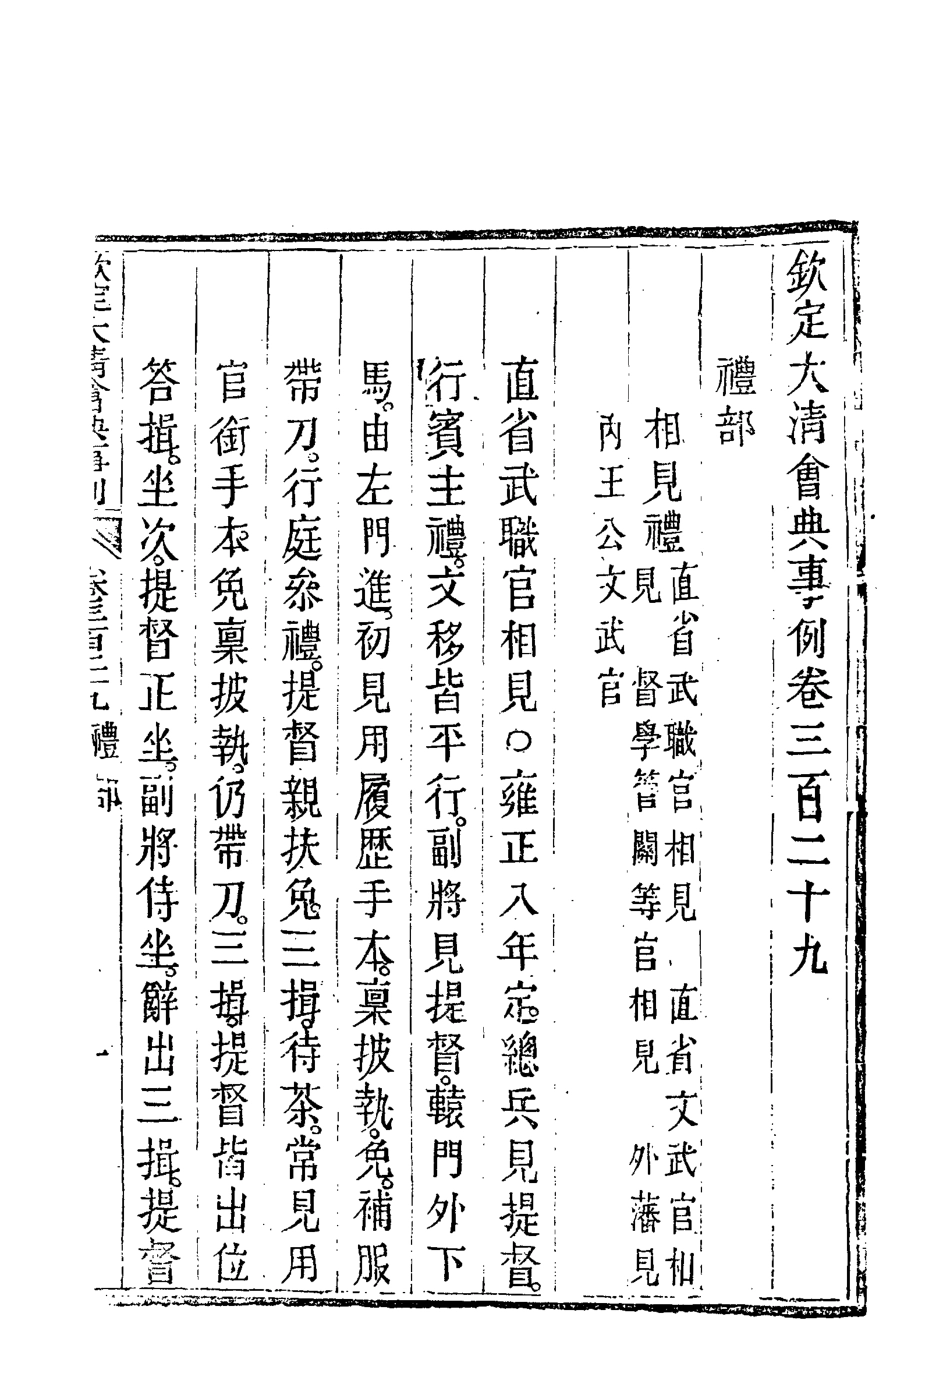 欽定大清會典事例卷三百二十九
禮部
相見禮 直省武職官相見 直省文武官相
見 督學管關等官相見 外藩見
內王公文武官
直省武職官相見○雍正八年定。總兵見提督。
行賓主禮。文移皆平行。副將見提督。轅門外下
馬。由左門進。初見用履歷手本。稟披執。免。補服
帶刀。行庭叅禮。提督親扶免。三揖。待茶。常見用
官銜手本。免稟披執。仍帶刀。三揖。提督皆出位
答揖。坐次。提督正坐。副將侍坐。辭出三揖。提督
欽定大清會典事例 卷三百二十九 禮部 一